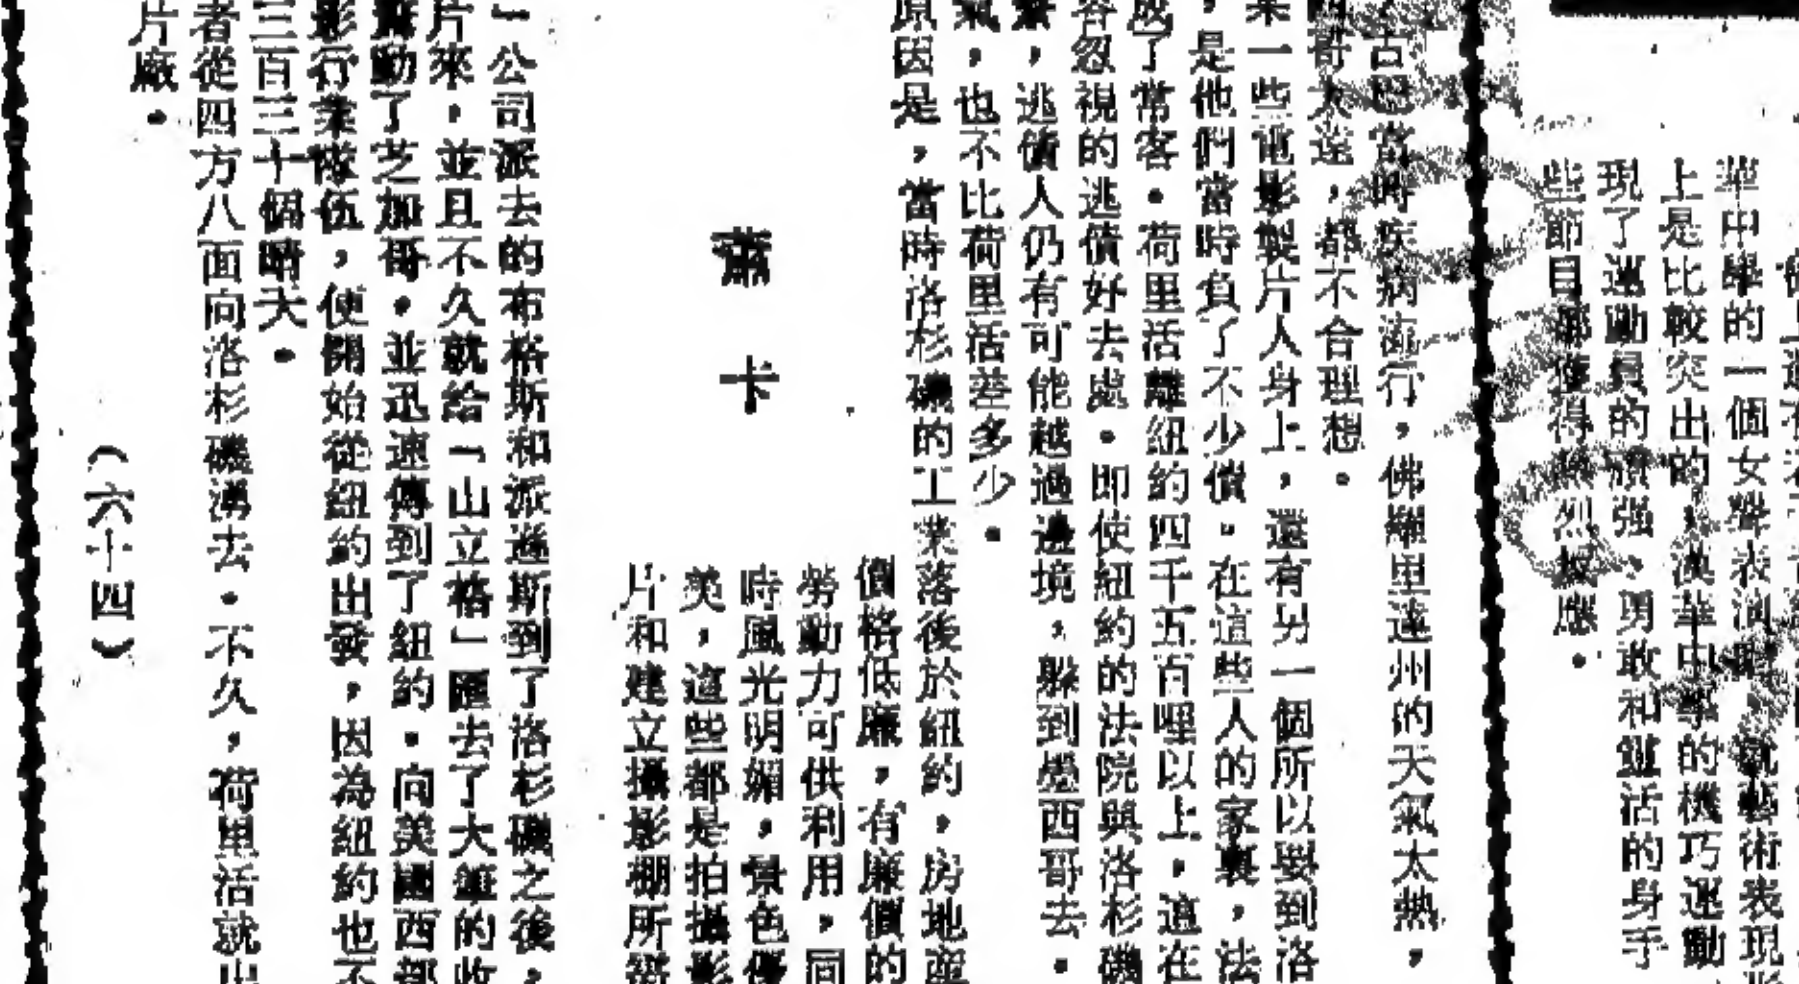 上
華中學的一個女聲表演唱
藝術表現
上是比較突出的
漢華中學的機巧運動
現了運動員的頑强、勇敢和靈活的身手
些節目都獲得熱烈反應。
古巴當時疾病流行，佛羅里達州的天氣太熱，
哥太遠，都不合理想。
某一些電影製片人身上，還有另一個所以要到洛
，是他們當時負了不少債。在這些人的家裏，法
成了常客。荷里活離紐約四千五百哩以上，這在
容忽視的逃債好去處。即使紐約的法院與洛杉磯
，逃債人仍有可能越過邊境，躲到墨西哥去。
氣，也不比荷里活差多少。
原因是，當時洛杉磯的工業落後於紐約，房地產
價格低廉，有廉價的
勞動力可供利用，同
時風光明媚，景色優
美，這些都是拍攝影
片和建立攝影棚所需
蕭卡
」公司派去的布格斯和派遜斯到了洛杉磯之後，
片來，並且不久就給「山立格」匯去了大筆的收
轟動了芝加哥。並迅速傳到了紐約。向美國西部
影行業隊伍，便開始從紐約出發，因為紐約也不
三百三十個晴天。
者從四方八面向洛杉磯湧去。不久，荷里活就出
片廠。
（六十四）